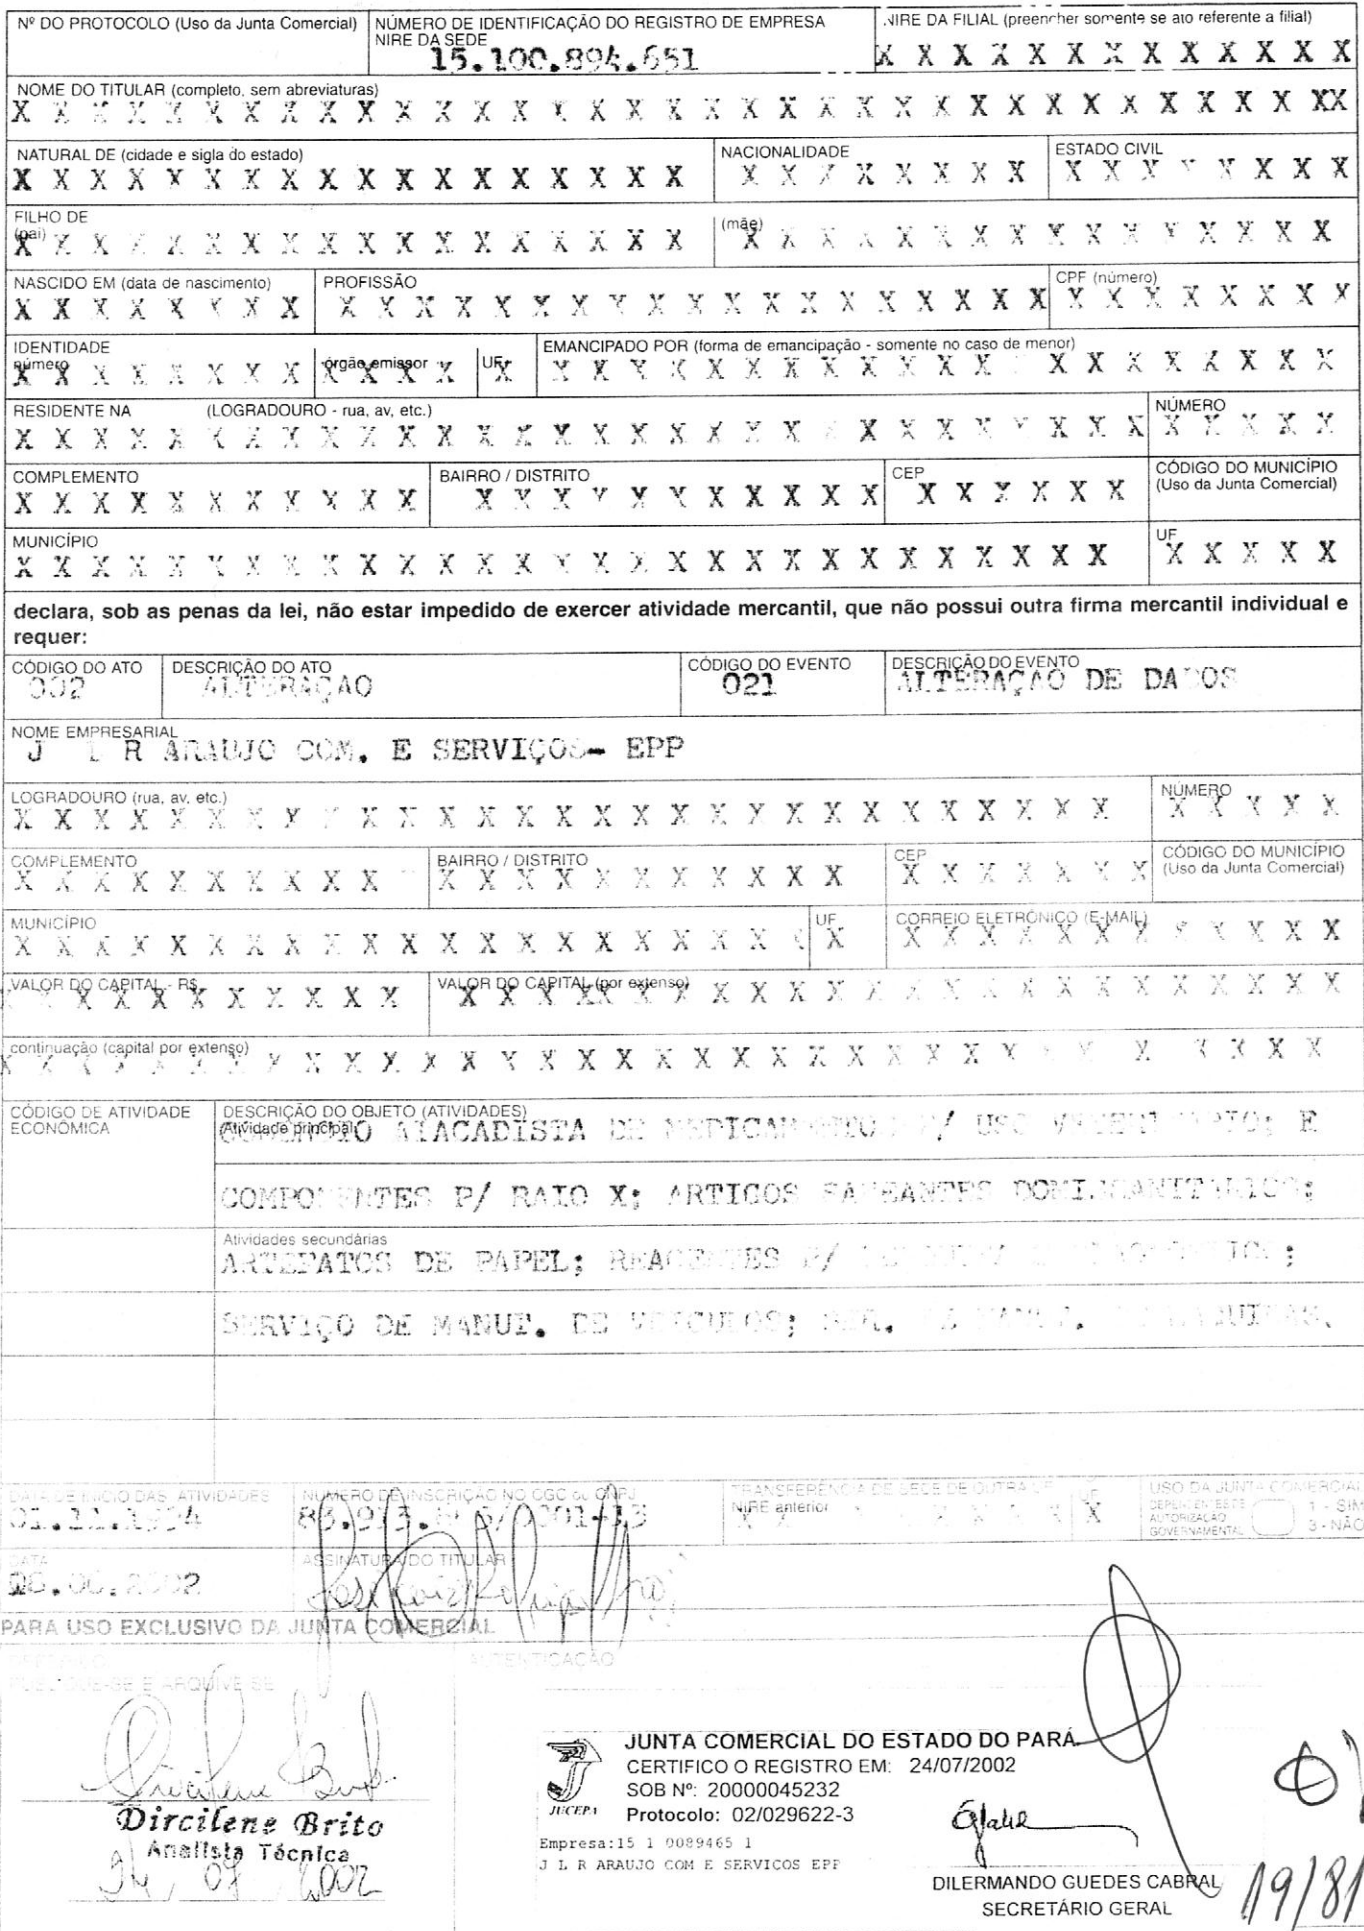 Nº DO PROTOCOLO (Uso da Junta Comercial)
NÚMERO DE IDENTIFICAÇÃO DO REGISTRO DE EMPRESA
NIRE DA SEDE
15.100.894.651
NIRE DA FILIAL (preencher somente se ato referente a filial)
X X X X X X X X X X X X X
NOME DO TITULAR (completo, sem abreviaturas)
X X X X X X X X X X X X X X X X X X X X X X X X X X X X X X X X X X XX
NATURAL DE (cidade e sigla do estado)
X X X X X X X X X X X X X X X X X X
NACIONALIDADE
X X X X X X X X
ESTADO CIVIL
X X X X X X X X
FILHO DE
(pai)
X X X X X X X X X X X X X X X X X X
(mãe)
X X X X X X X X X X X X X X X X
NASCIDO EM (data de nascimento)
X X X X X X X X
PROFISSÃO
X X X X X X X X X X X X X X X X X X X
CPF (número)
X X X X X X X X
IDENTIDADE
número
X X X X X X X X
órgão emissor
X X X X
UF
X
EMANCIPADO POR (forma de emancipação - somente no caso de menor)
X X X X X X X X X X X X X X X X X X X
RESIDENTE NA (LOGRADOURO - rua, av, etc.)
X X X X X X X X X X X X X X X X X X X X X X X X X X X X X
NÚMERO
X X X X X
COMPLEMENTO
X X X X X X X X X X X
BAIRRO / DISTRITO
X X X X X X X X X X X
CEP
X X X X X X
CÓDIGO DO MUNICÍPIO
(Uso da Junta Comercial)
MUNICÍPIO
X X X X X X X X X X X X X X X X X X X X X X X X X X X X X
UF
X X X X X
declara, sob as penas da lei, não estar impedido de exercer atividade mercantil, que não possui outra firma mercantil individual e
requer:
CÓDIGO DO ATO
002
DESCRIÇÃO DO ATO
ALTERAÇAO
CÓDIGO DO EVENTO
021
DESCRIÇÃO DO EVENTO
ALTERAÇAO DE DADOS
NOME EMPRESARIAL
J L R ARAUJO COM. E SERVIÇOS- EPP
LOGRADOURO (rua, av, etc.)
X X X X X X X X X X X X X X X X X X X X X X X X X X X X X
NÚMERO
X X X X X
COMPLEMENTO
X X X X X X X X X X
BAIRRO / DISTRITO
X X X X X X X X X X X
CEP
X X X X X X X
CÓDIGO DO MUNICÍPIO
(Uso da Junta Comercial)
MUNICÍPIO
X X X X X X X X X X X X X X X X X X X X X
UF
X
CORREIO ELETRÔNICO (E-MAIL)
X X X X X X X X X X X X
VALOR DO CAPITAL - R$
X X X X X X X X X X
VALOR DO CAPITAL (por extenso)
X X X X X X X X X X X X X X X X X X X X X X X
continuação (capital por extenso)
X X X X X X X X X X X X X X X X X X X X X X X X X X X X X X X X X X
CÓDIGO DE ATIVIDADE
ECONÔMICA
DESCRIÇÃO DO OBJETO (ATIVIDADES)
Atividade principal
COMERCIO ATACADISTA DE MEDICAMENTO P/ USO VETERINARIO; E
COMPONENTES P/ RAIO X; ARTIGOS SANEANTES DOMISSANITARIOS;
Atividades secundárias
ARTEFATOS DE PAPEL; REAGENTES P/
SERVIÇO DE MANUT. DE VEICULOS; MAQUINAS.
DATA DE INICIO DAS ATIVIDADES
01.11.1994
NÚMERO DE INSCRIÇÃO NO CGC ou CNPJ
TRANSFERÊNCIA DE SEDE DE OUTRA UF
NIRE anterior
X X X X X X X
UF
X
USO DA JUNTA COMERCIAL
DEPENDENTE DE
AUTORIZAÇÃO
GOVERNAMENTAL
1 - SIM
3 - NÃO
DATA
ASSINATURA DO TITULAR
PARA USO EXCLUSIVO DA JUNTA COMERCIAL
DEFERIDO.
PUBLIQUE-SE E ARQUIVE-SE
AUTENTICAÇÃO
Dircilene Brito
Analista Técnica
24, 07 2002
JUCEPA
JUNTA COMERCIAL DO ESTADO DO PARÁ
CERTIFICO O REGISTRO EM: 24/07/2002
SOB Nº: 20000045232
Protocolo: 02/029622-3
Empresa:15 1 0089465 1
J L R ARAUJO COM E SERVICOS EPP
DILERMANDO GUEDES CABRAL
SECRETÁRIO GERAL
19/81